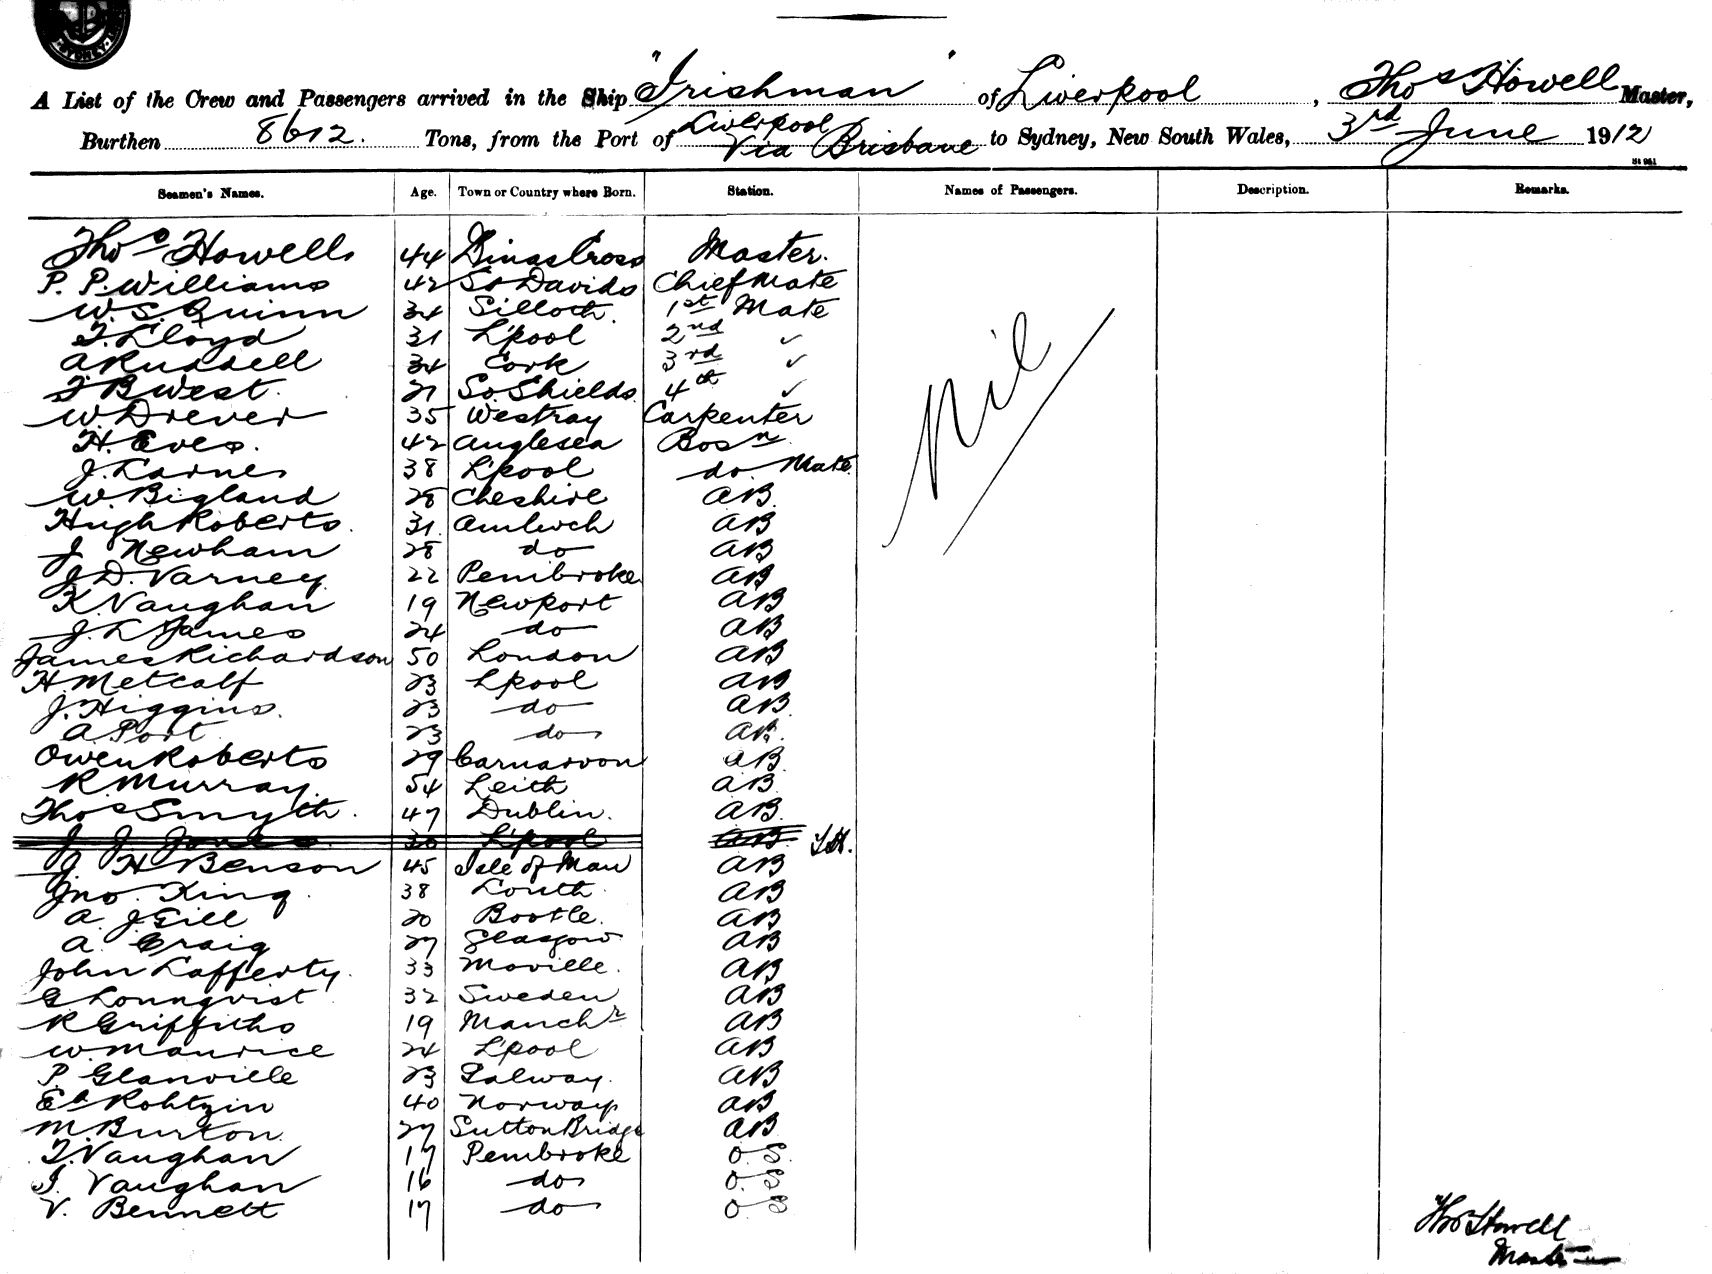 A List of the Crew and Passengers arrived in the Ship "Irishman" of Liverpool, Thos Howell Master,
Burthen 8612. Tons, from the Port of Liverpool Via Brisbane to Sydney, New South Wales, 3rd June 1912
Seamen's Names. Age. Town or Country where Born. Station. Names of Passengers. Description. Remarks.
Thos Howells 44 Kings Cross Master.
P. P. Williams 42 St Davids Chief Mate
W. S. Quinn 34 Silloth. 1st Mate
T. Lloyd 31 L'pool 2nd ✓
A Russell 34 Cork 3rd ✓
T B West. 27 So. Shields 4th ✓
W. Drever 35 Westray Carpenter
H. Eves. 42 Anglesea Bosn
J. Carnes 38 L'pool do Mate
W. Bigland 28 Cheshire AB
Hugh Roberts. 31 Amlwch AB
J. Newham 28 do AB
J. D. Varney 22 Pembroke AB
K. Vaughan 19 Newport AB
J. L James 24 do AB
James Richardson 50 London AB
H Metcalf 23 L'pool AB
J. Higgins. 23 do AB
A Port. 23 do AB.
Owen Roberts 29 Carnarvon AB
R. Murray. 54 Leith AB
Thos Smyth. 47 Dublin. AB
J J Jones. 30 L'pool AB TH.
J. H Benson 45 Isle of Man AB
Jno. King. 38 Louth AB
A. J Gill 20 Bootle. AB
A. Craig 27 Glasgow AB
John Lafferty. 33 Moville. AB
G Lonnqvist 32 Sweden AB
R Griffiths 19 Manchr AB
W. Maurice 24 L'pool AB
P. Glanville 23 Galway. AB
Ed Rohtzin 40 Norway AB
M. Burton. 27 Sutton Bridge AB
T. Vaughan 17 Pembroke O.S.
I. Vaughan 16 do O.S
V. Bennett 17 do O S
Nil
Thos Howell
Master